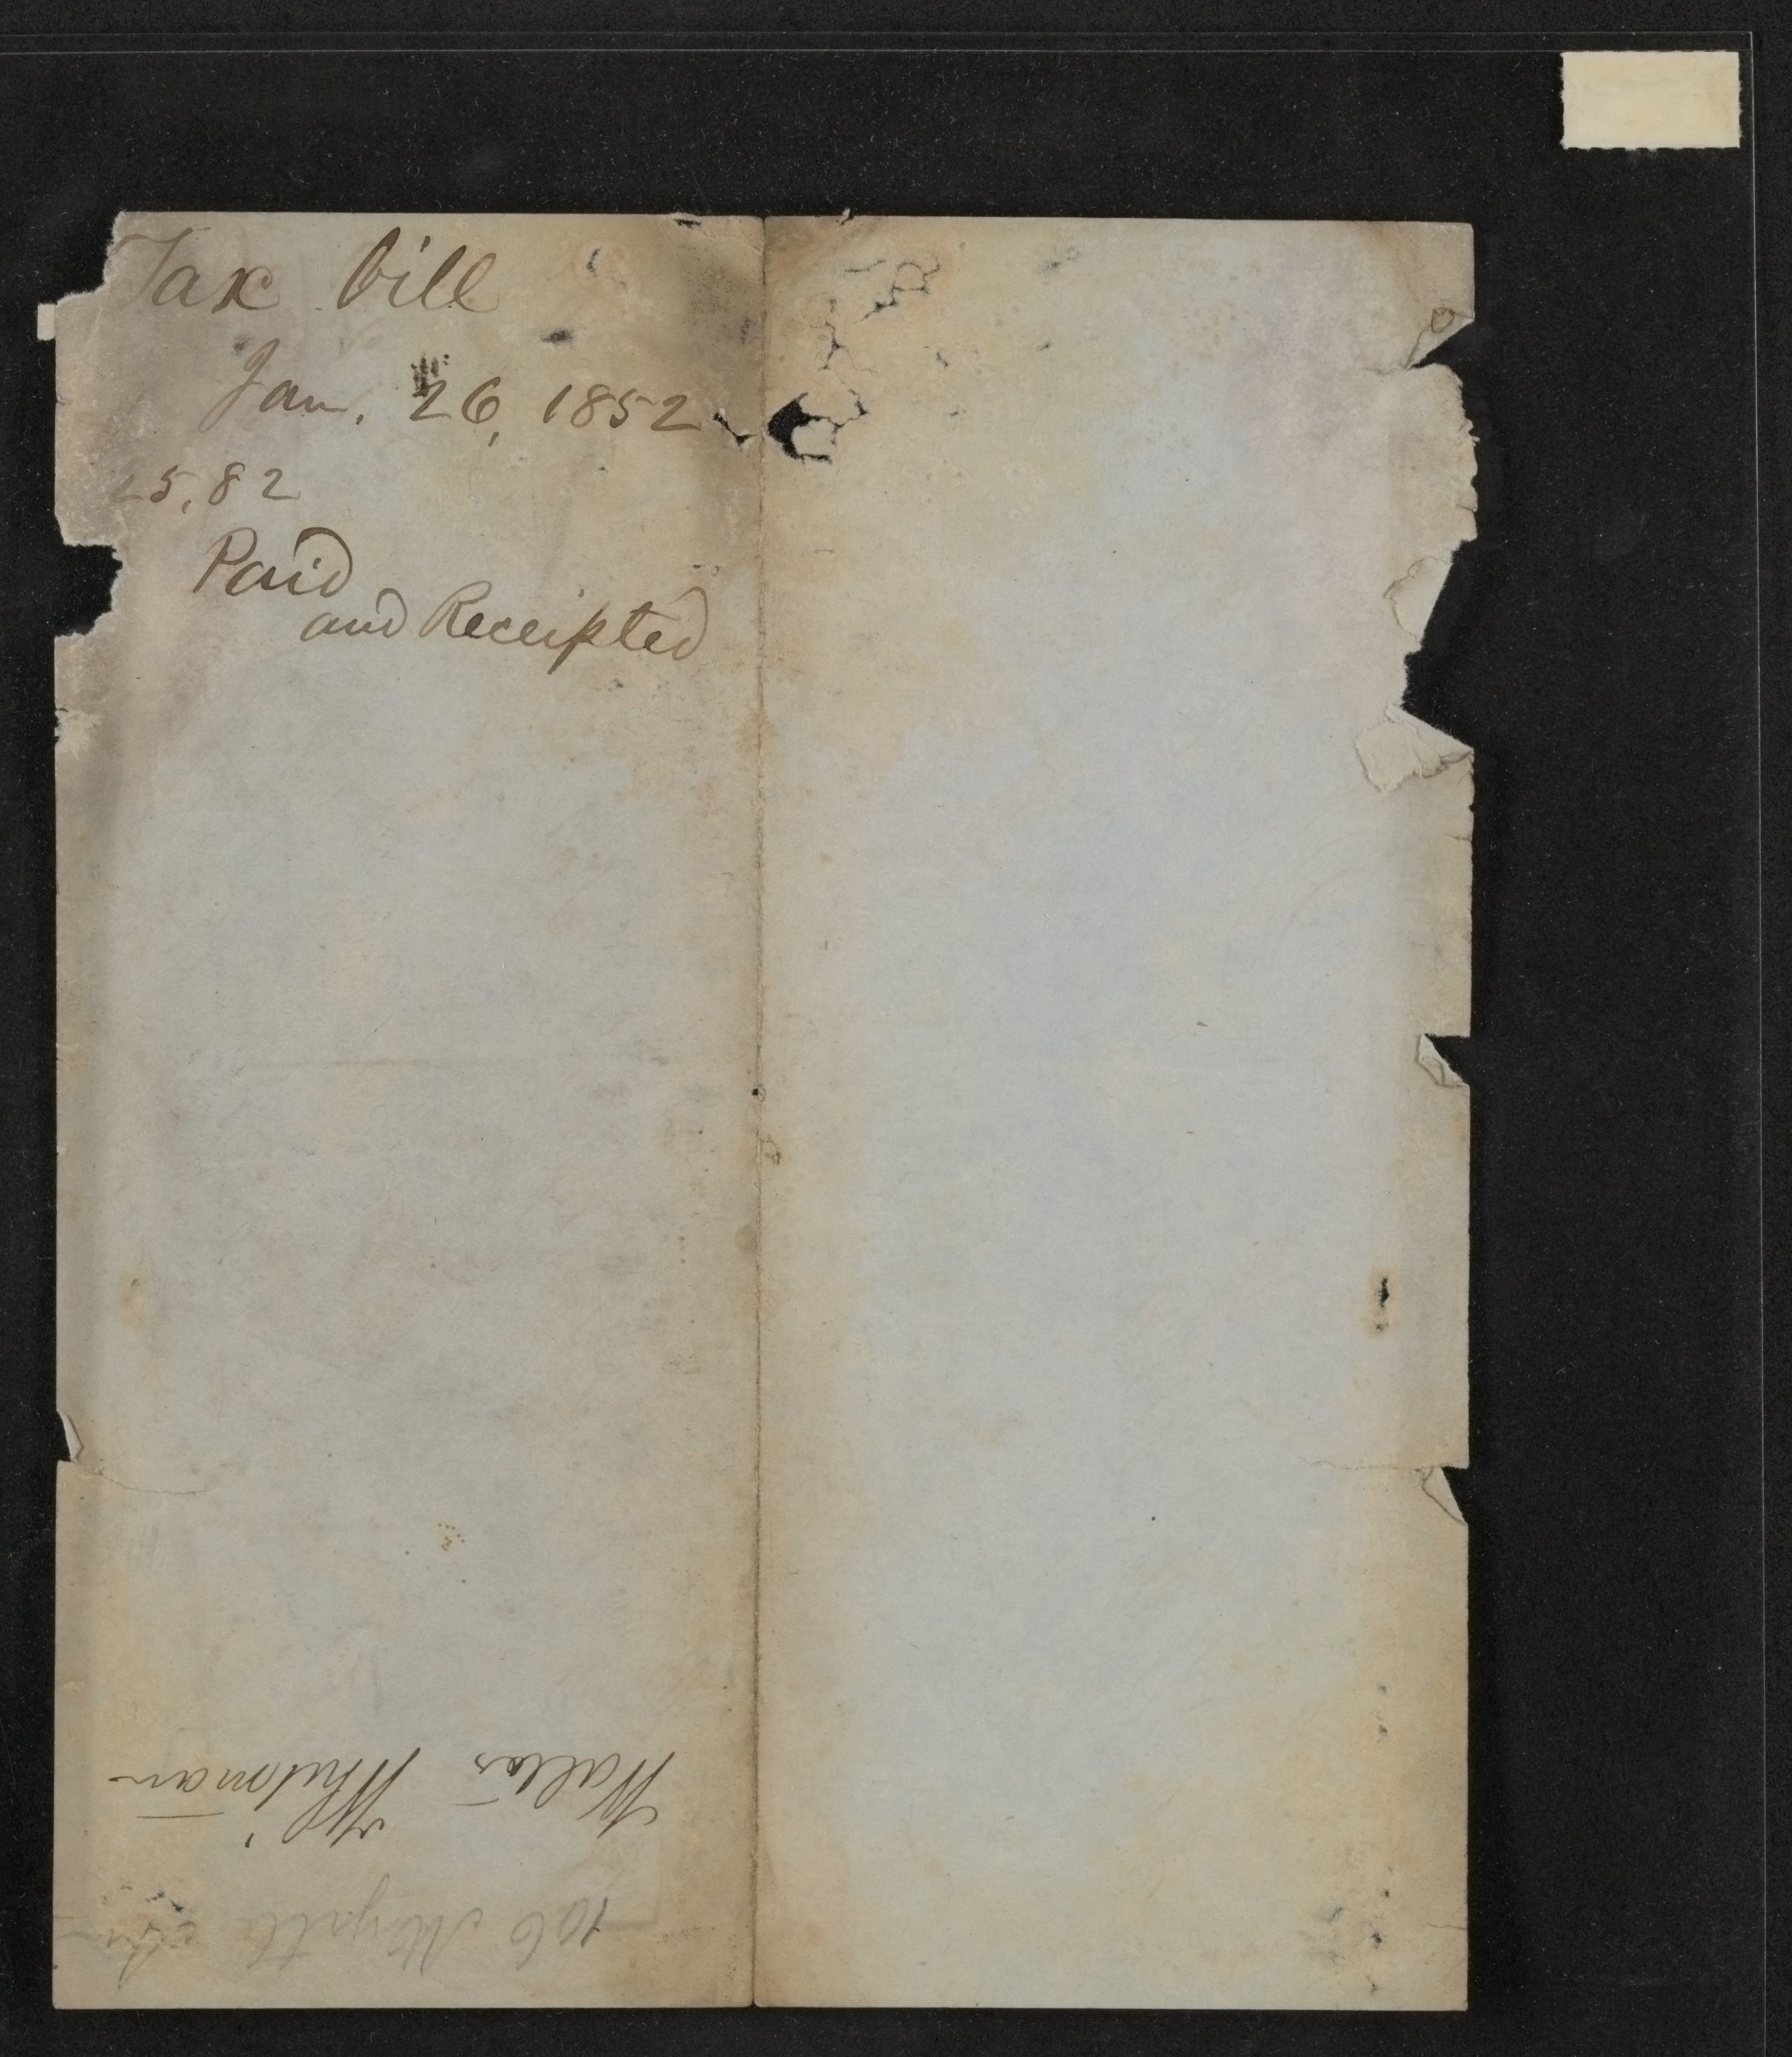 Tax bill
Jan. 26, 1852
25,82
Paid
and Receipted
Walter Whitman
106 Myrtle